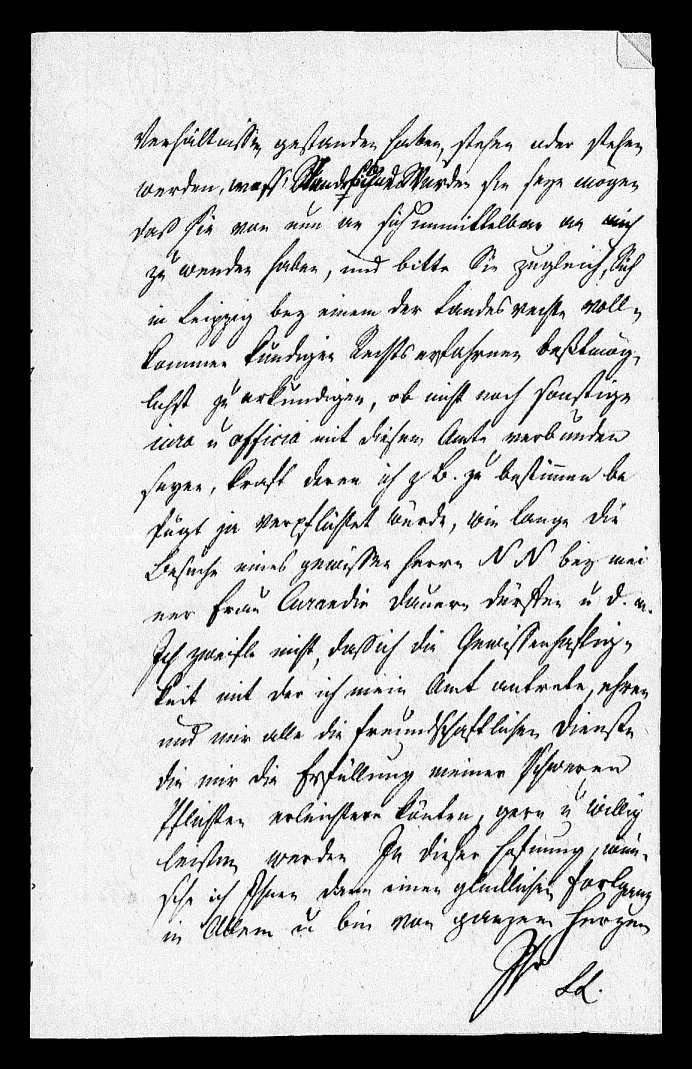 Verhältnissen gestanden haben, stehen oder stehen
werden, weß Standes und Würden sie seyn mögen
daß sie von nun an sich unmittelbar an mich
zu wenden haben, und bitte Sie zugleich, Sich
in Leipzig bey einem der Landesrechte voll-
kommen kundigen Rechtserfahrnen bestmög-
lichst zu erkundigen, ob nicht noch sonstige
iura u officia mit diesem Amte verbunden
seyen, kraft deren ich z B. zu bestimmen be
fugt ja verpflichtet würde, wie lange die
Besuche eines gewissen Herrn N N bey mei
ner Frau Curandin dauern dürften u. d. m.
Ich zweifle nicht, daß sich die Gewissenhaftig-
keit mit der ich mein Amt antrete, ehren
und mir alle die freundschaftlichen Dienste
die mir die Erfüllung meiner schweren
Pflichten erleichtern könten, gern u willig
leisten werden In dieser Hofnung, wün-
sche ich Ihnen denn einen glücklichen Fortgang
in Allem u bin von ganzem Herzen
Ihr